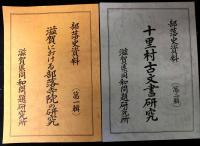 部落史資料
十里村古文書研究
(第二輯)
滋賀県同和問題研究所
部落史資料
滋賀における部落寺院の研究
(第一輯)
滋賀県同和問題研究所